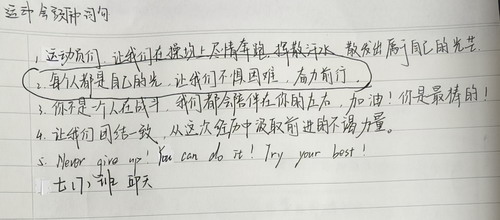 运动会致辞词句
1. 运动员们，让我们在操场上尽情奔跑，挥散汗水，散发出属于自己的光芒.
2. 每个人都是自己的光，让我们不惧困难，奋力前行.
3. 你不是一个人在战斗，我们都会陪伴在你的左右，加油！你是最棒的！
4. 让我们团结一致，从这次经历中汲取前进的不竭力量。
5. Never give up! You can do it! Try your best!